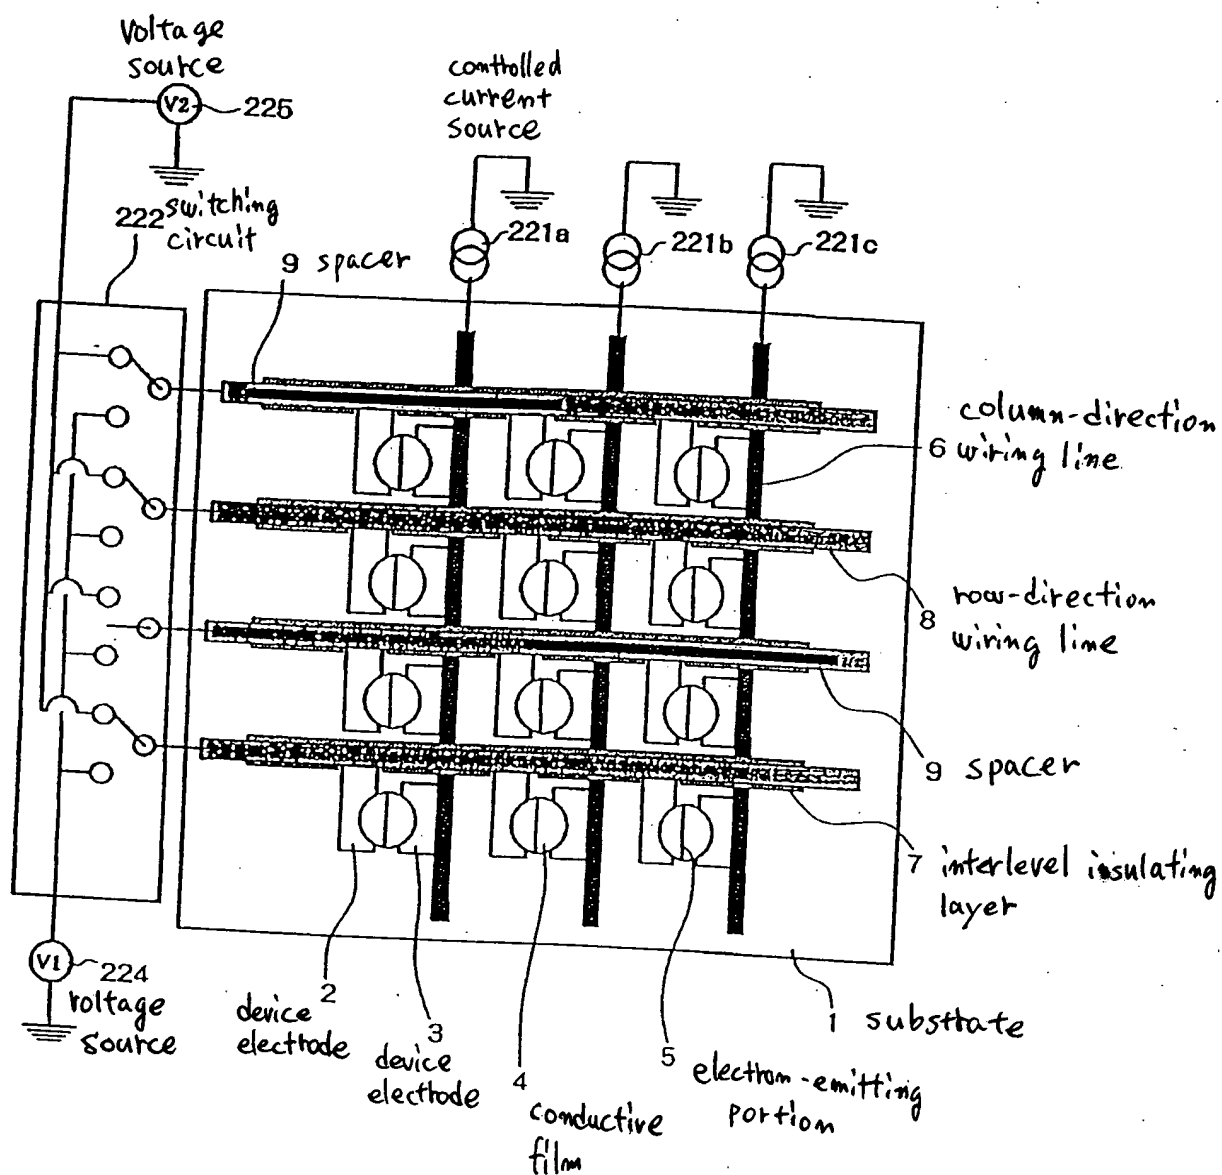 Voltage
source
V2
225
controlled
current
source
222 switching
circuit
221a
221b
221c
9 spacer
column-direction
6 wiring line
8 row-direction
wiring line
9 spacer
7 interlevel insulating
layer
V1
224
voltage
source
2
device
electrode
3
device
electrode
4
conductive
film
5
electron-emitting
portion
1 substrate